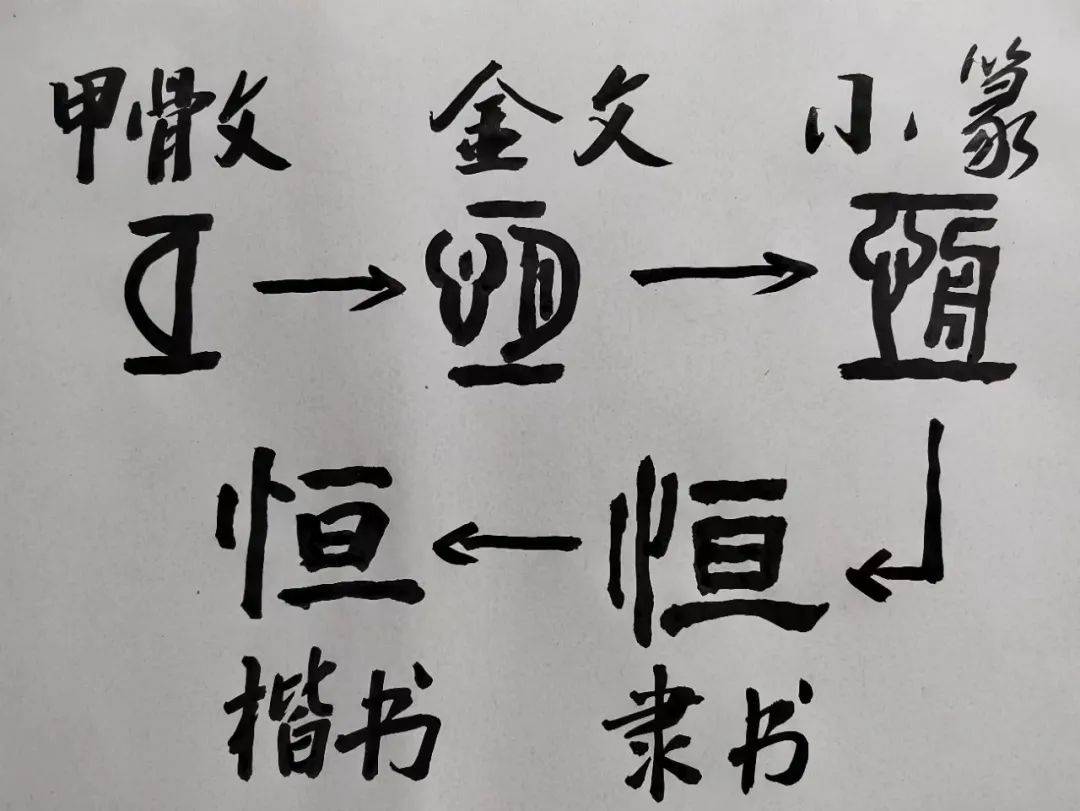 甲骨文 金文 小篆
恒 恒
楷书 隶书